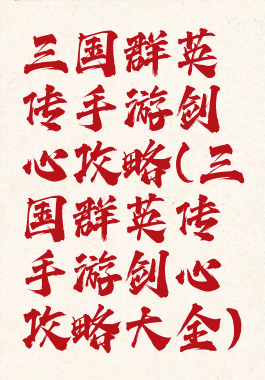 三国群英
传手游剑
心攻略(三
国群英传
手游剑心
攻略大全)